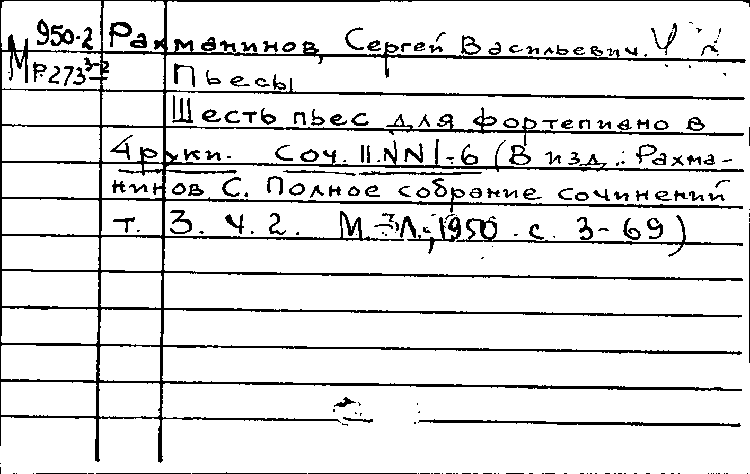 950-2 Рахманинов, Сергей Васильевич.
М Р273 3-2 Пьесы
Шесть пьес для фортепиано в
4 руки. Соч. II. NN 1-6 (В изд.: Рахма-
нинов С. Полное собрание сочинений
т. 3. ч. 2. М.-Л., 1950. с. 3-69)